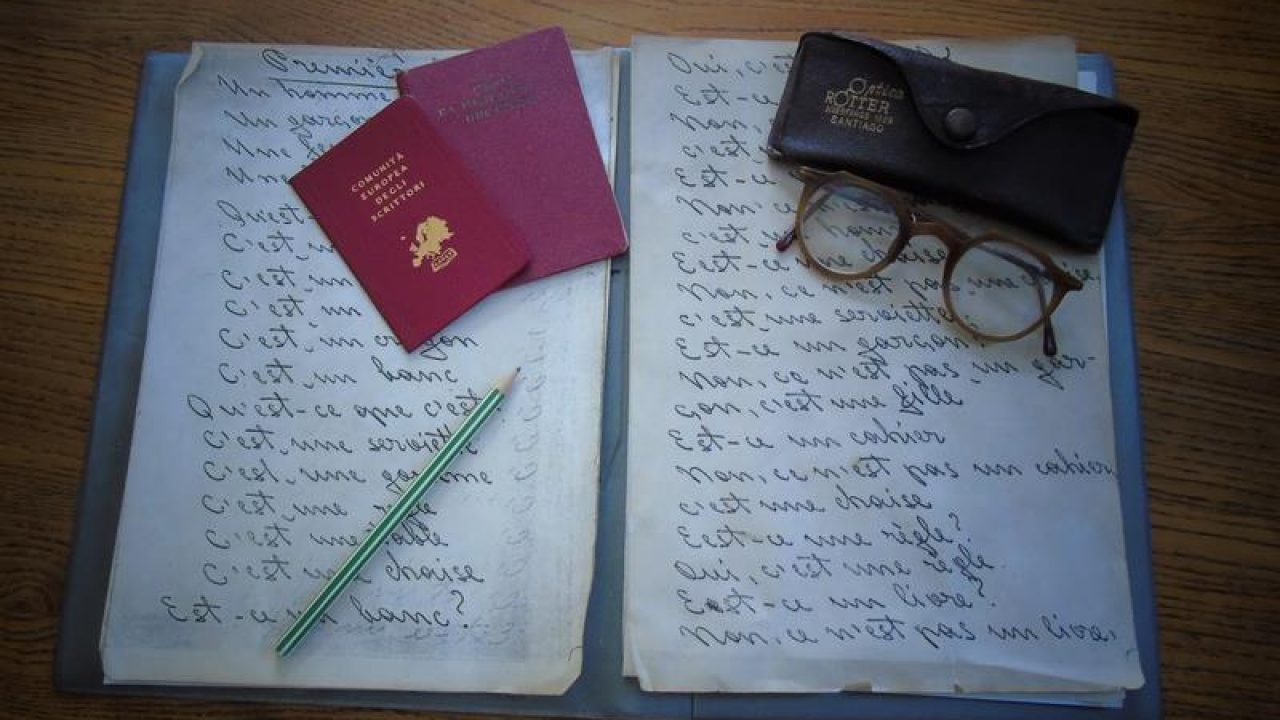 Premiè
Un homme
Un garçon
Une
Une
Qu'est-
C'est un
C'est un
C'est un
C'est un crayon
C'est un banc
Qu'est-ce que c'est
C'est une serviette
C'est une gomme
C'est une
C'est une table
C'est une chaise
Est-ce un banc?
COMUNITÀ
EUROPEA
DEGLI
SCRITTORI
Oui, c'est
Est-ce
Non,
c'est
Est-ce
Non,
c'est un
Eest-ce une chaise
Non, ce n'est pas une chaise,
c'est une serviette
Est-ce un garçon?
Non, ce n'est pas un gar-
çon, c'est une fille
Est-ce un cahier
Non, ce n'est pas un cahier,
c'est une chaise
Eest-ce une règle?
Oui, c'est une règle.
Eest-ce un livre?
Non, ce n'est pas un livre,
Optica
ROTTER
SANTIAGO